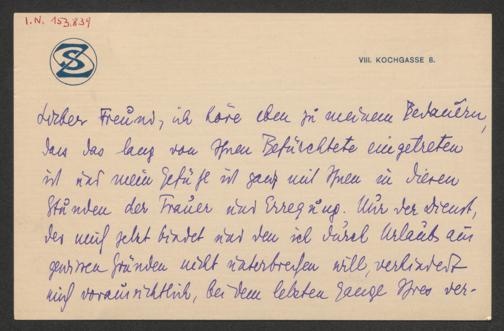 I.N. 153.834
SZ
VIII. KOCHGASSE 8.
Lieber Freund, ich höre eben zu meinem Bedauern,
dass das lang von Ihnen Befürchtete eingetreten
ist und mein Gefühl ist ganz mit Ihnen in diesen
Stunden der Trauer und Erregung. Nur der Dienst,
der mich jetzt bindet und den ich durch Urlaub aus
gewissen Gründen nicht unterbrechen will, verhindert
mich voraussichtlich, bei dem letzten Gange Ihres ver-